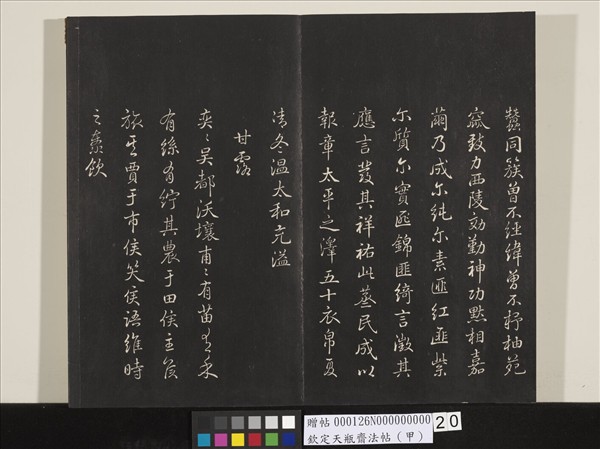 蠶同簇曾不經緯曾不杼柚苑
窳致力西陵効勤神功默相嘉
繭乃成尓純尓素匪紅匪紫
尓質尓實匪錦匪綺言徵其
應言發其祥祐此蒸民成以
報章太平之澤五十衣帛夏
清冬温太和充溢
甘露
奕〻吴都沃壤甫〻有苗有禾
有絲有紵其農于田侯主侯
旅其賈于市侯笑侯語維時
之彙飲
贈帖 000126N000000000
欽定天瓶齋法帖（甲）
20